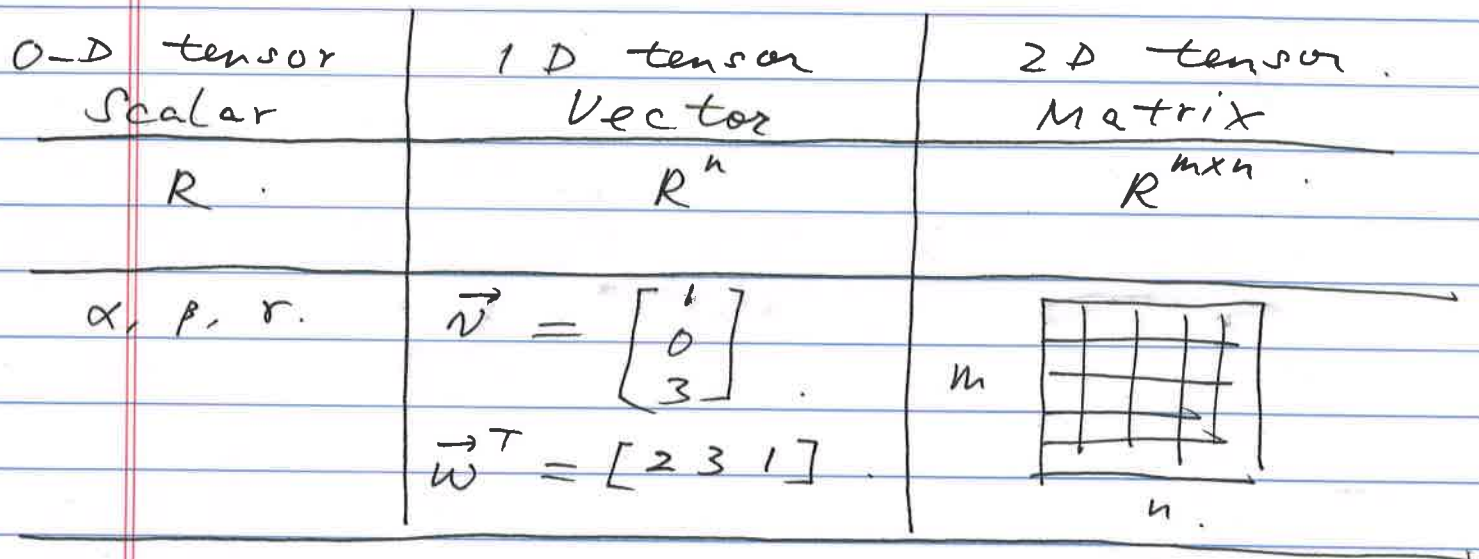 0-D tensor
Scalar
1 D tensor
Vector
2 D tensor.
Matrix
R.
Rⁿ
Rᵐˣⁿ.
α, β, γ.
v⃗ = [1 0 3].
w⃗ᵀ = [2 3 1].
m
n.